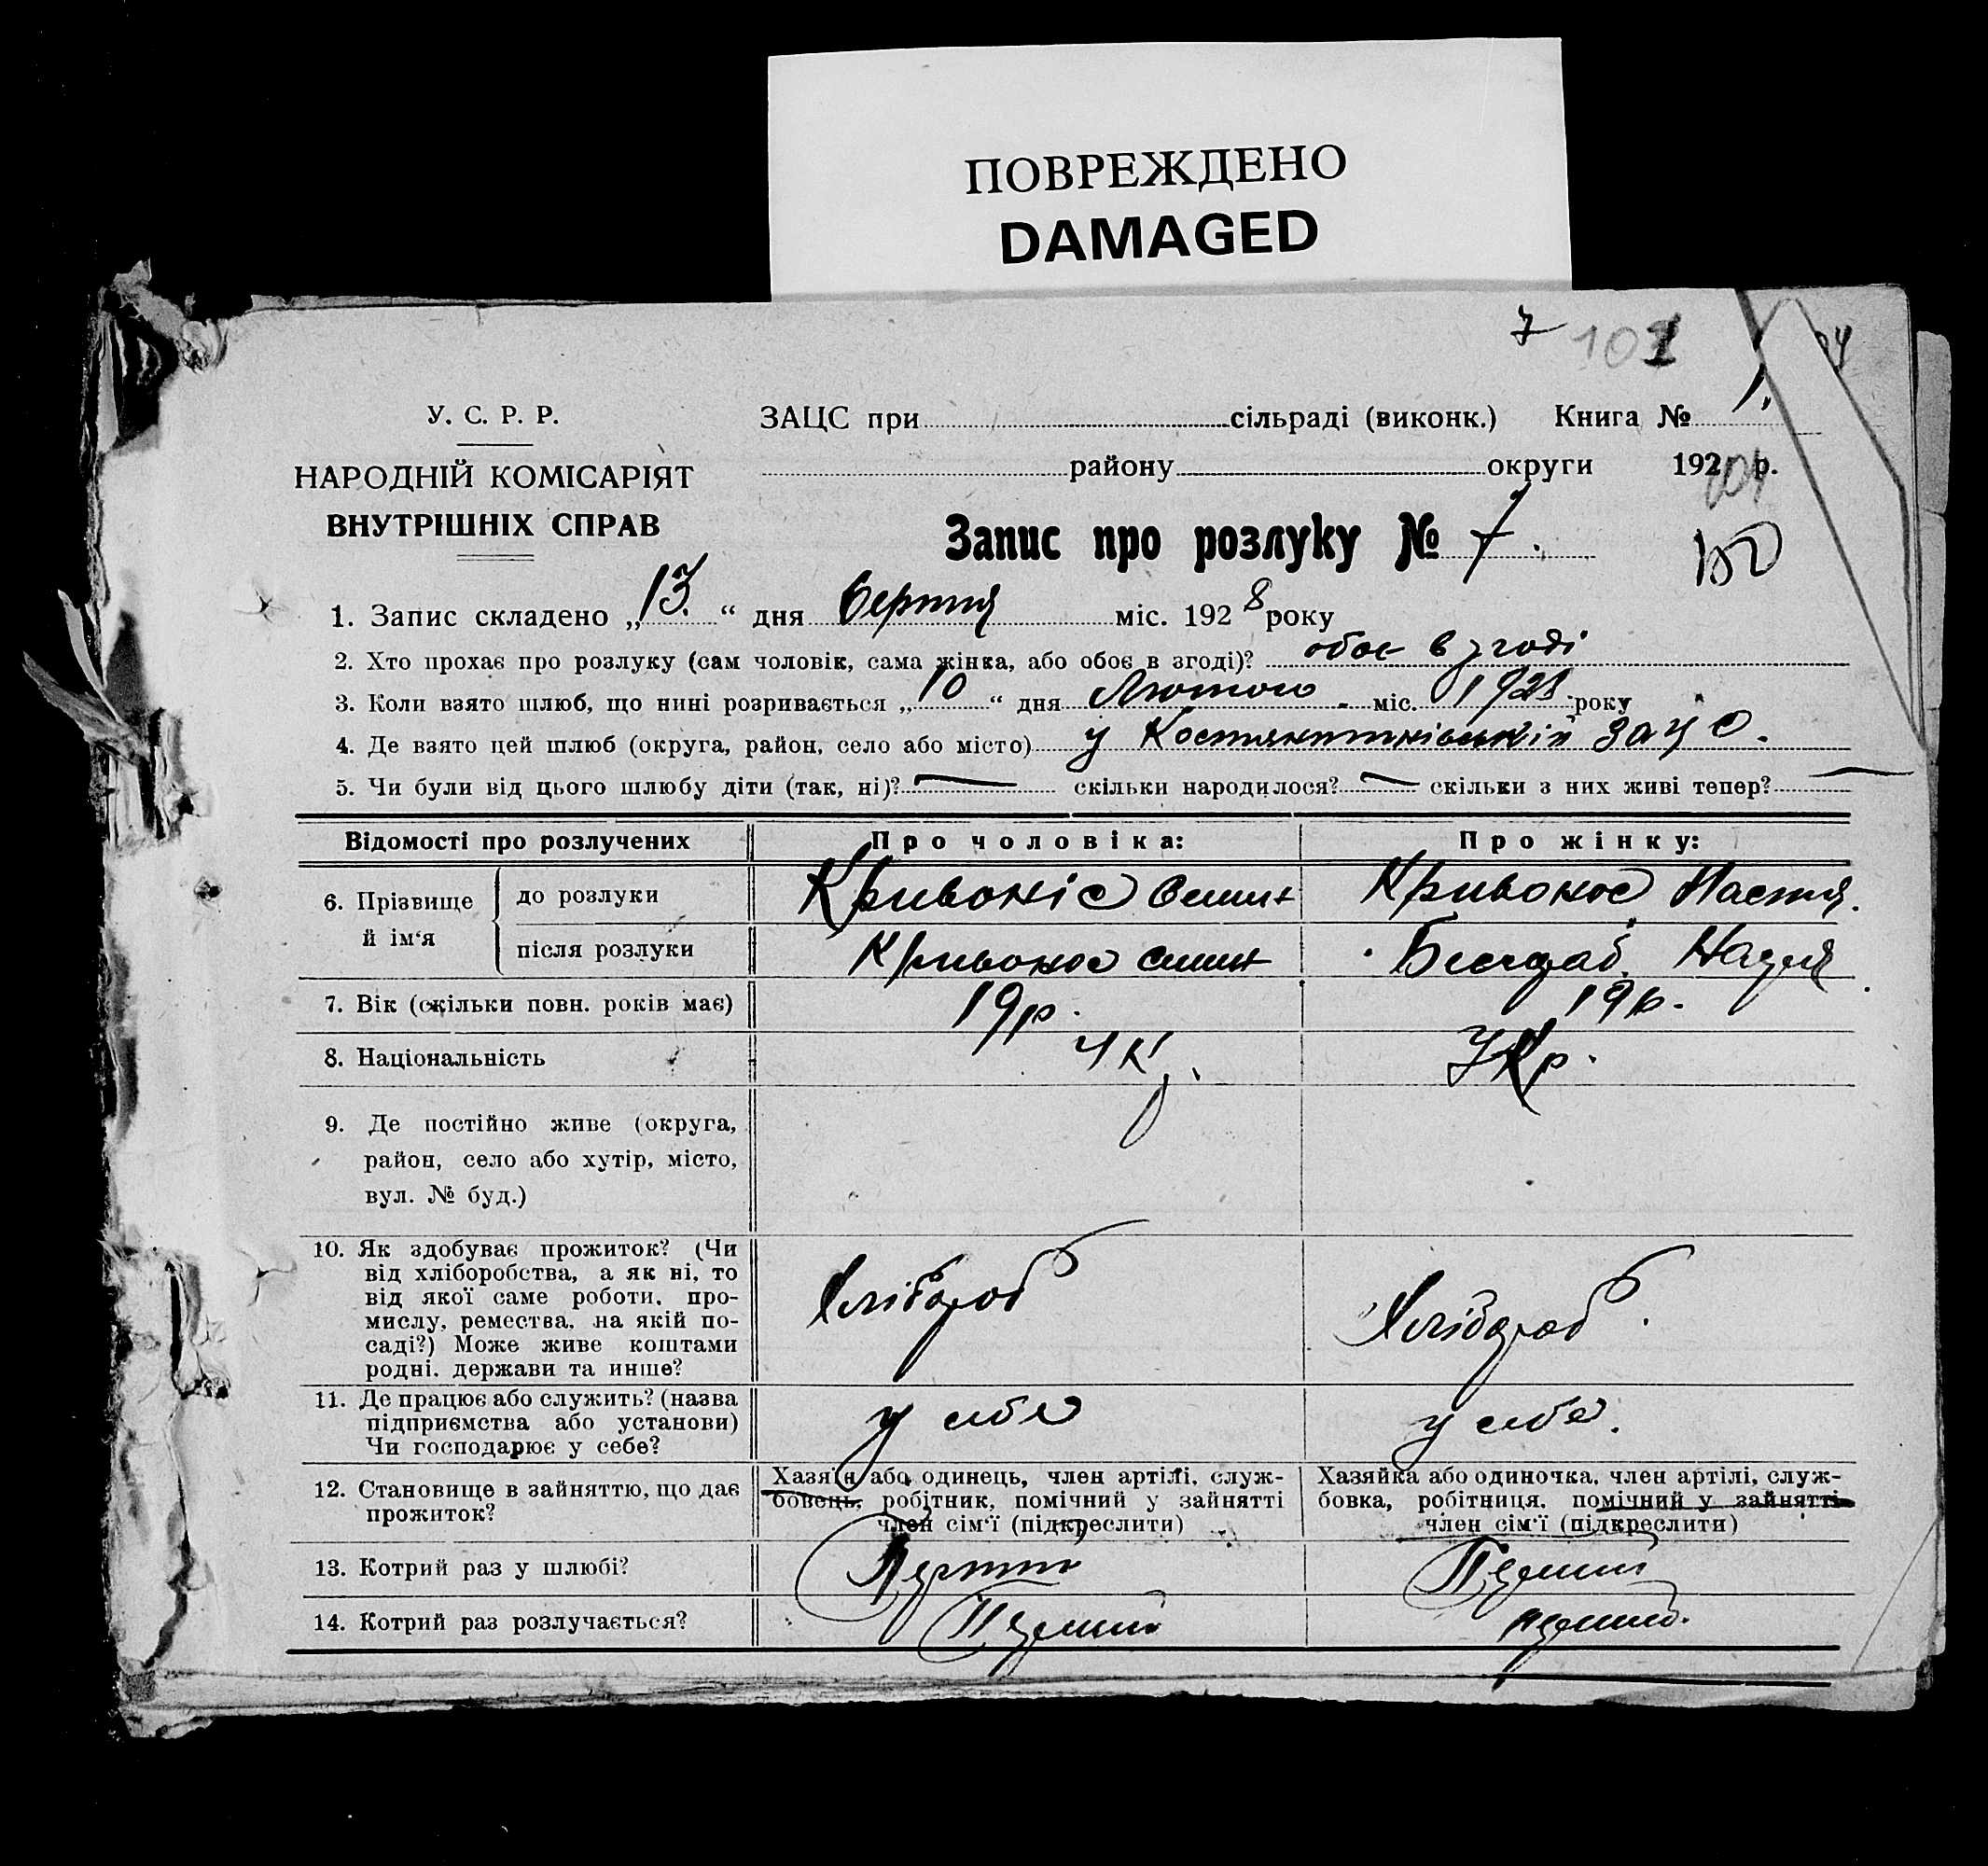 ПОВРЕЖДЕНО
DAMAGED
7 101
У. С. Р. Р.
ЗАЦС при сільраді (виконк.) Книга № 1.
району округи 192 р.
104
НАРОДНІЙ КОМІСАРІЯТ
ВНУТРІШНІХ СПРАВ
Запис про розлуку № 7.
1. Запис складено „13.“ дня Серпня міс. 1928 року
2. Хто прохає про розлуку (сам чоловік, сама жінка, або обоє в згоді)? обоє в згоді
3. Коли взято шлюб, що нині розривається „10“ дня Лютого міс. 1928 року
4. Де взято цей шлюб (округа, район, село або місто) у Костянтинівській ЗАЦС.
5. Чи були від цього шлюбу діти (так, ні)? — скільки народилося? — скільки з них живі тепер? —
Відомості про розлучених Про чоловіка: Про жінку:
6. Прізвище й ім‘я
до розлуки Кривоніс Кривонос Настя.
після розлуки Кривонос Надія
7. Вік (скільки повн. років має) 19р. 19р.
8. Національність Ук Укр.
9. Де постійно живе (округа,
район, село або хутір, місто,
вул. № буд.)
10. Як здобуває прожиток? (Чи
від хліборобства, а як ні, то
від якої саме роботи, про-
мислу, ремества, на якій по-
саді?) Може живе коштами
родні, держави та инше?
Хлібороб Хлібороб.
11. Де працює або служить? (назва
підприємства або установи)
Чи господарює у себе?
у себе у себе.
12. Становище в зайняттю, що дає
прожиток?
Хазяїн або одинець, член артілі, служ-
бовець, робітник, помічний у зайнятті
член сім‘ї (підкреслити)
Хазяйка або одиночка, член артілі, служ-
бовка, робітниця, помічний у зайнятті
член сім‘ї (підкреслити)
13. Котрий раз у шлюбі? Перший Перший
14. Котрий раз розлучається? Перший перший.